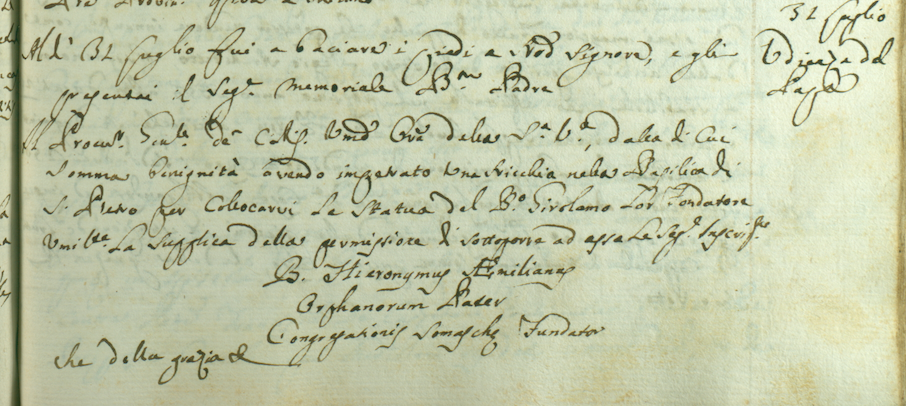 31 Luglio
Al di 31 Luglio fui a baciare i Piedi a Nro Signore, e gli
Udienza del
presentai il seg.te Memoriale B.mo Padre
Papa
Il Procur. Gen.le de Ch. Som. Umo Ore della S.a V.a, dalla di Cui
somma benignità avendo impetrato una Nicchia nella Basilica di
S. Pietro per Collocarvi la Statua del B.o Girolamo Lor Fondatore
Umil.te La Supplica della permissione di sottoporre ad essa La Seg.te Inscriz.ne
B. Hieronymus Æmilianus
Orphanorum Pater
Congregationis Somaschę Fundator
che della grazia &